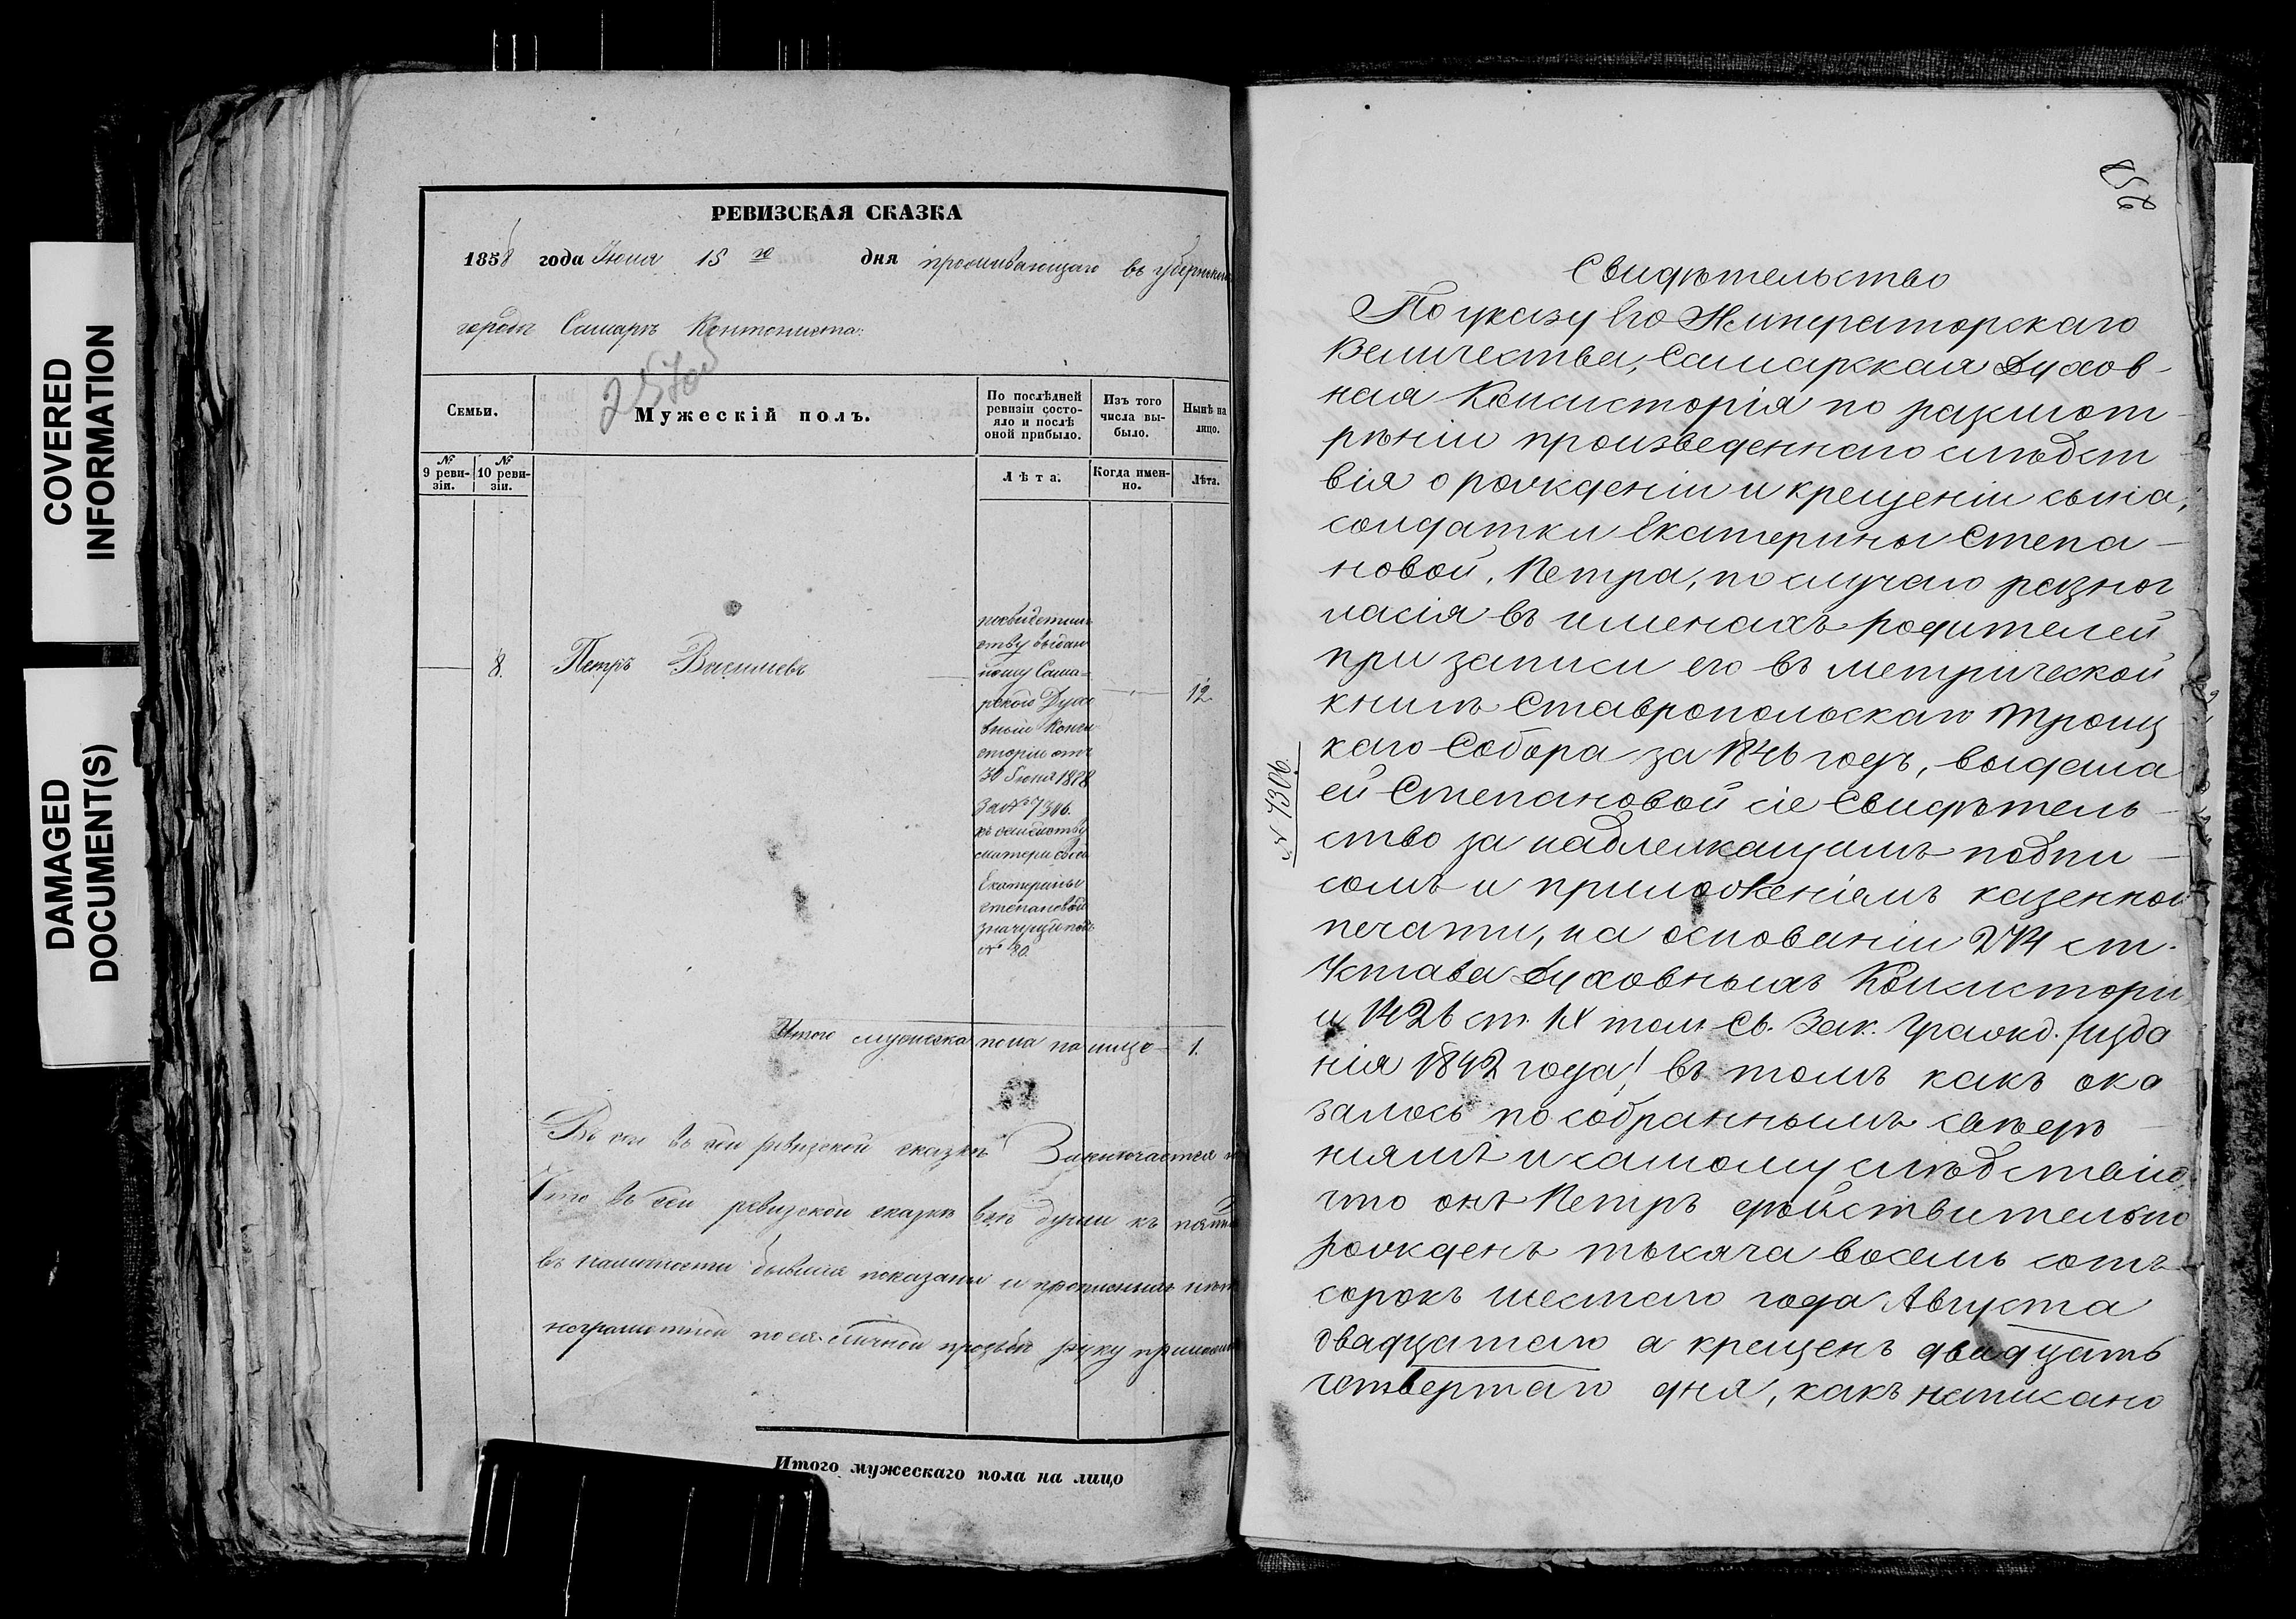 COVERED
INFORMATION
DAMAGED
DOCUMENT(S)
РЕВИЗСКАЯ СКАЗКА
1858 года Іюня 15 го дня проживающаго въ губернском
городѣ Самарѣ Кантониста.
Семьи.
Мужескій полъ.
По послѣдней
ревизіи состо-
яло и послѣ
оной прибыло.
Изъ того
числа вы-
было.
Нынѣ на
лицо.
№
9 реви-
зіи.
№
10 реви-
зіи.
Лѣта.
Когда имен-
но.
Лѣта.
8. Петръ Васильевъ
12
посвидетель
ству выдан
ному Сама-
рской Духо
вной Конси
сторіи отъ
30 Іюня 1858
за № 7306.
матери
Екатерины
Степановой
№ 80.
Итого мужеска пола на лицо 1.
ревизской сказкѣ Заключается
Что въ сей ревизской сказкѣ всѣ души къ
въ наличности бывшія показаны и прописныхъ нѣтъ
неграмотной по ея личной прозьбѣ руку приложилъ
Итого мужескаго пола на лицо
Свидѣтельство
По указу Его Императорскаго
Величества, Самаркая Духов-
ная Консисторія по разсмот-
рѣніи произведеннаго слѣдст
вія о рожденіи и крещеніи сына,
солдатки Екатерины Степа-
новой, Петра, по случаю разног
ласія въ именахъ родителей
при записи его въ метрической
книгѣ Ставропольскаго Троиц
каго Собора за 1846 годъ, выдала
ей Степановой сіе Свидѣтель-
ство за надлежащимъ подпи-
сомъ и приложеніемъ казенной
печати, на основаніи 274 ст.
Устава Духовныхъ Консистори
и 1426 ст. IX том. Св. Зак. Гражд. /изда
нія 1842 года/ въ томъ какъ ока
залось по собраннымъ свѣдѣ-
ніямъ и самому слѣдствію,
что онъ Петръ дѣйствительно
рожденъ тысяча восемь сотъ
сорокъ шестаго года Августа
двадцатаго а крещенъ двадцать
четвертаго дня, какъ написано
№ 7306.